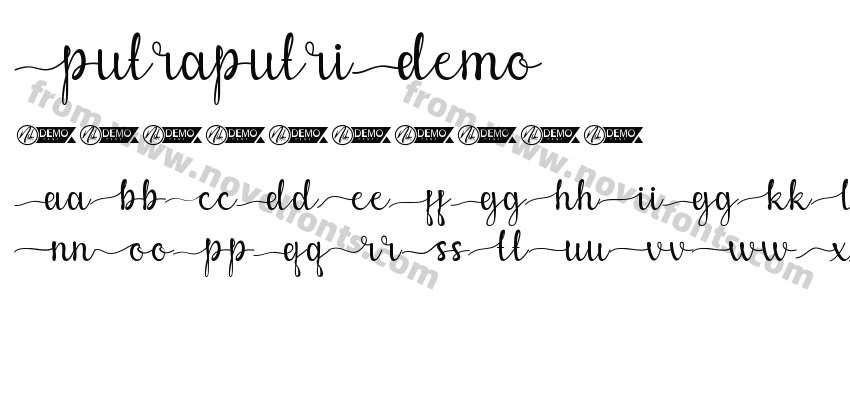 putraputri demo
DEMO DEMO DEMO DEMO DEMO DEMO DEMO DEMO DEMO DEMO
aa bb cc dd ee ff gg hh ii gg kk l
nn oo pp qq rr ss tt uu vv ww x
from www.novelfonts.com
from www.novelfonts.com